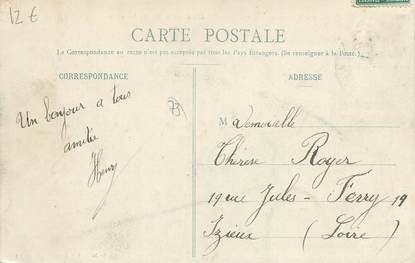 12 €
CARTE POSTALE
La Correspondance au recto n'est pas acceptée par tous les Pays Étrangers. (Se renseigner à la Poste.)
CORRESPONDANCE
ADRESSE
Un bonjour a tous
amitié
Henry
Mademoiselle
Thérèse Royer
19 rue Jules-Ferry 19
Izieux (Loire)